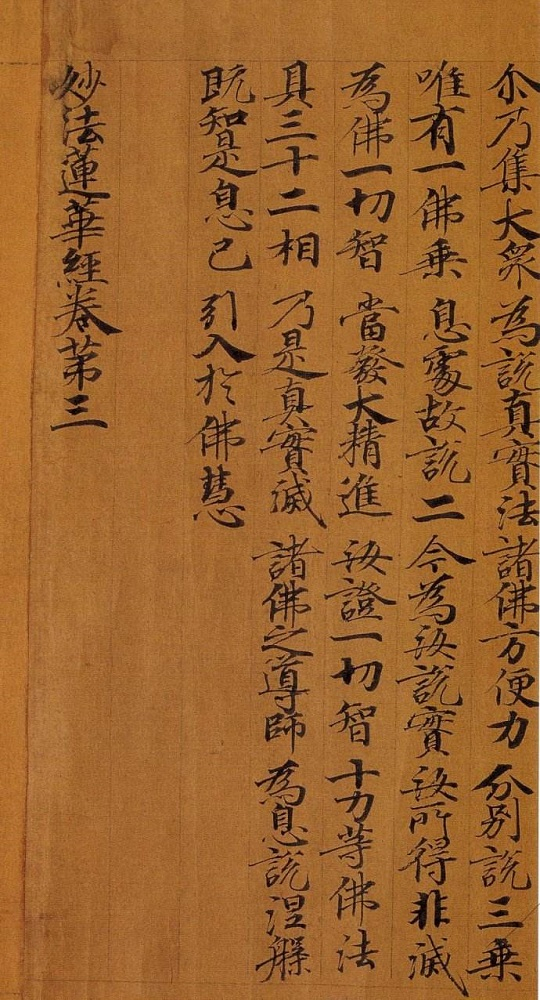 尒乃集大衆 為說真實法 諸佛方便力 分別說三乗
唯有一佛乗 息處故說二 今為汝說實 汝所得非滅
為佛一切智 當發大精進 汝證一切智 十力等佛法
具三十二相 乃是真實滅 諸佛之導師 為息說涅槃
既知是息已 引入於佛慧
妙法蓮華經卷第三